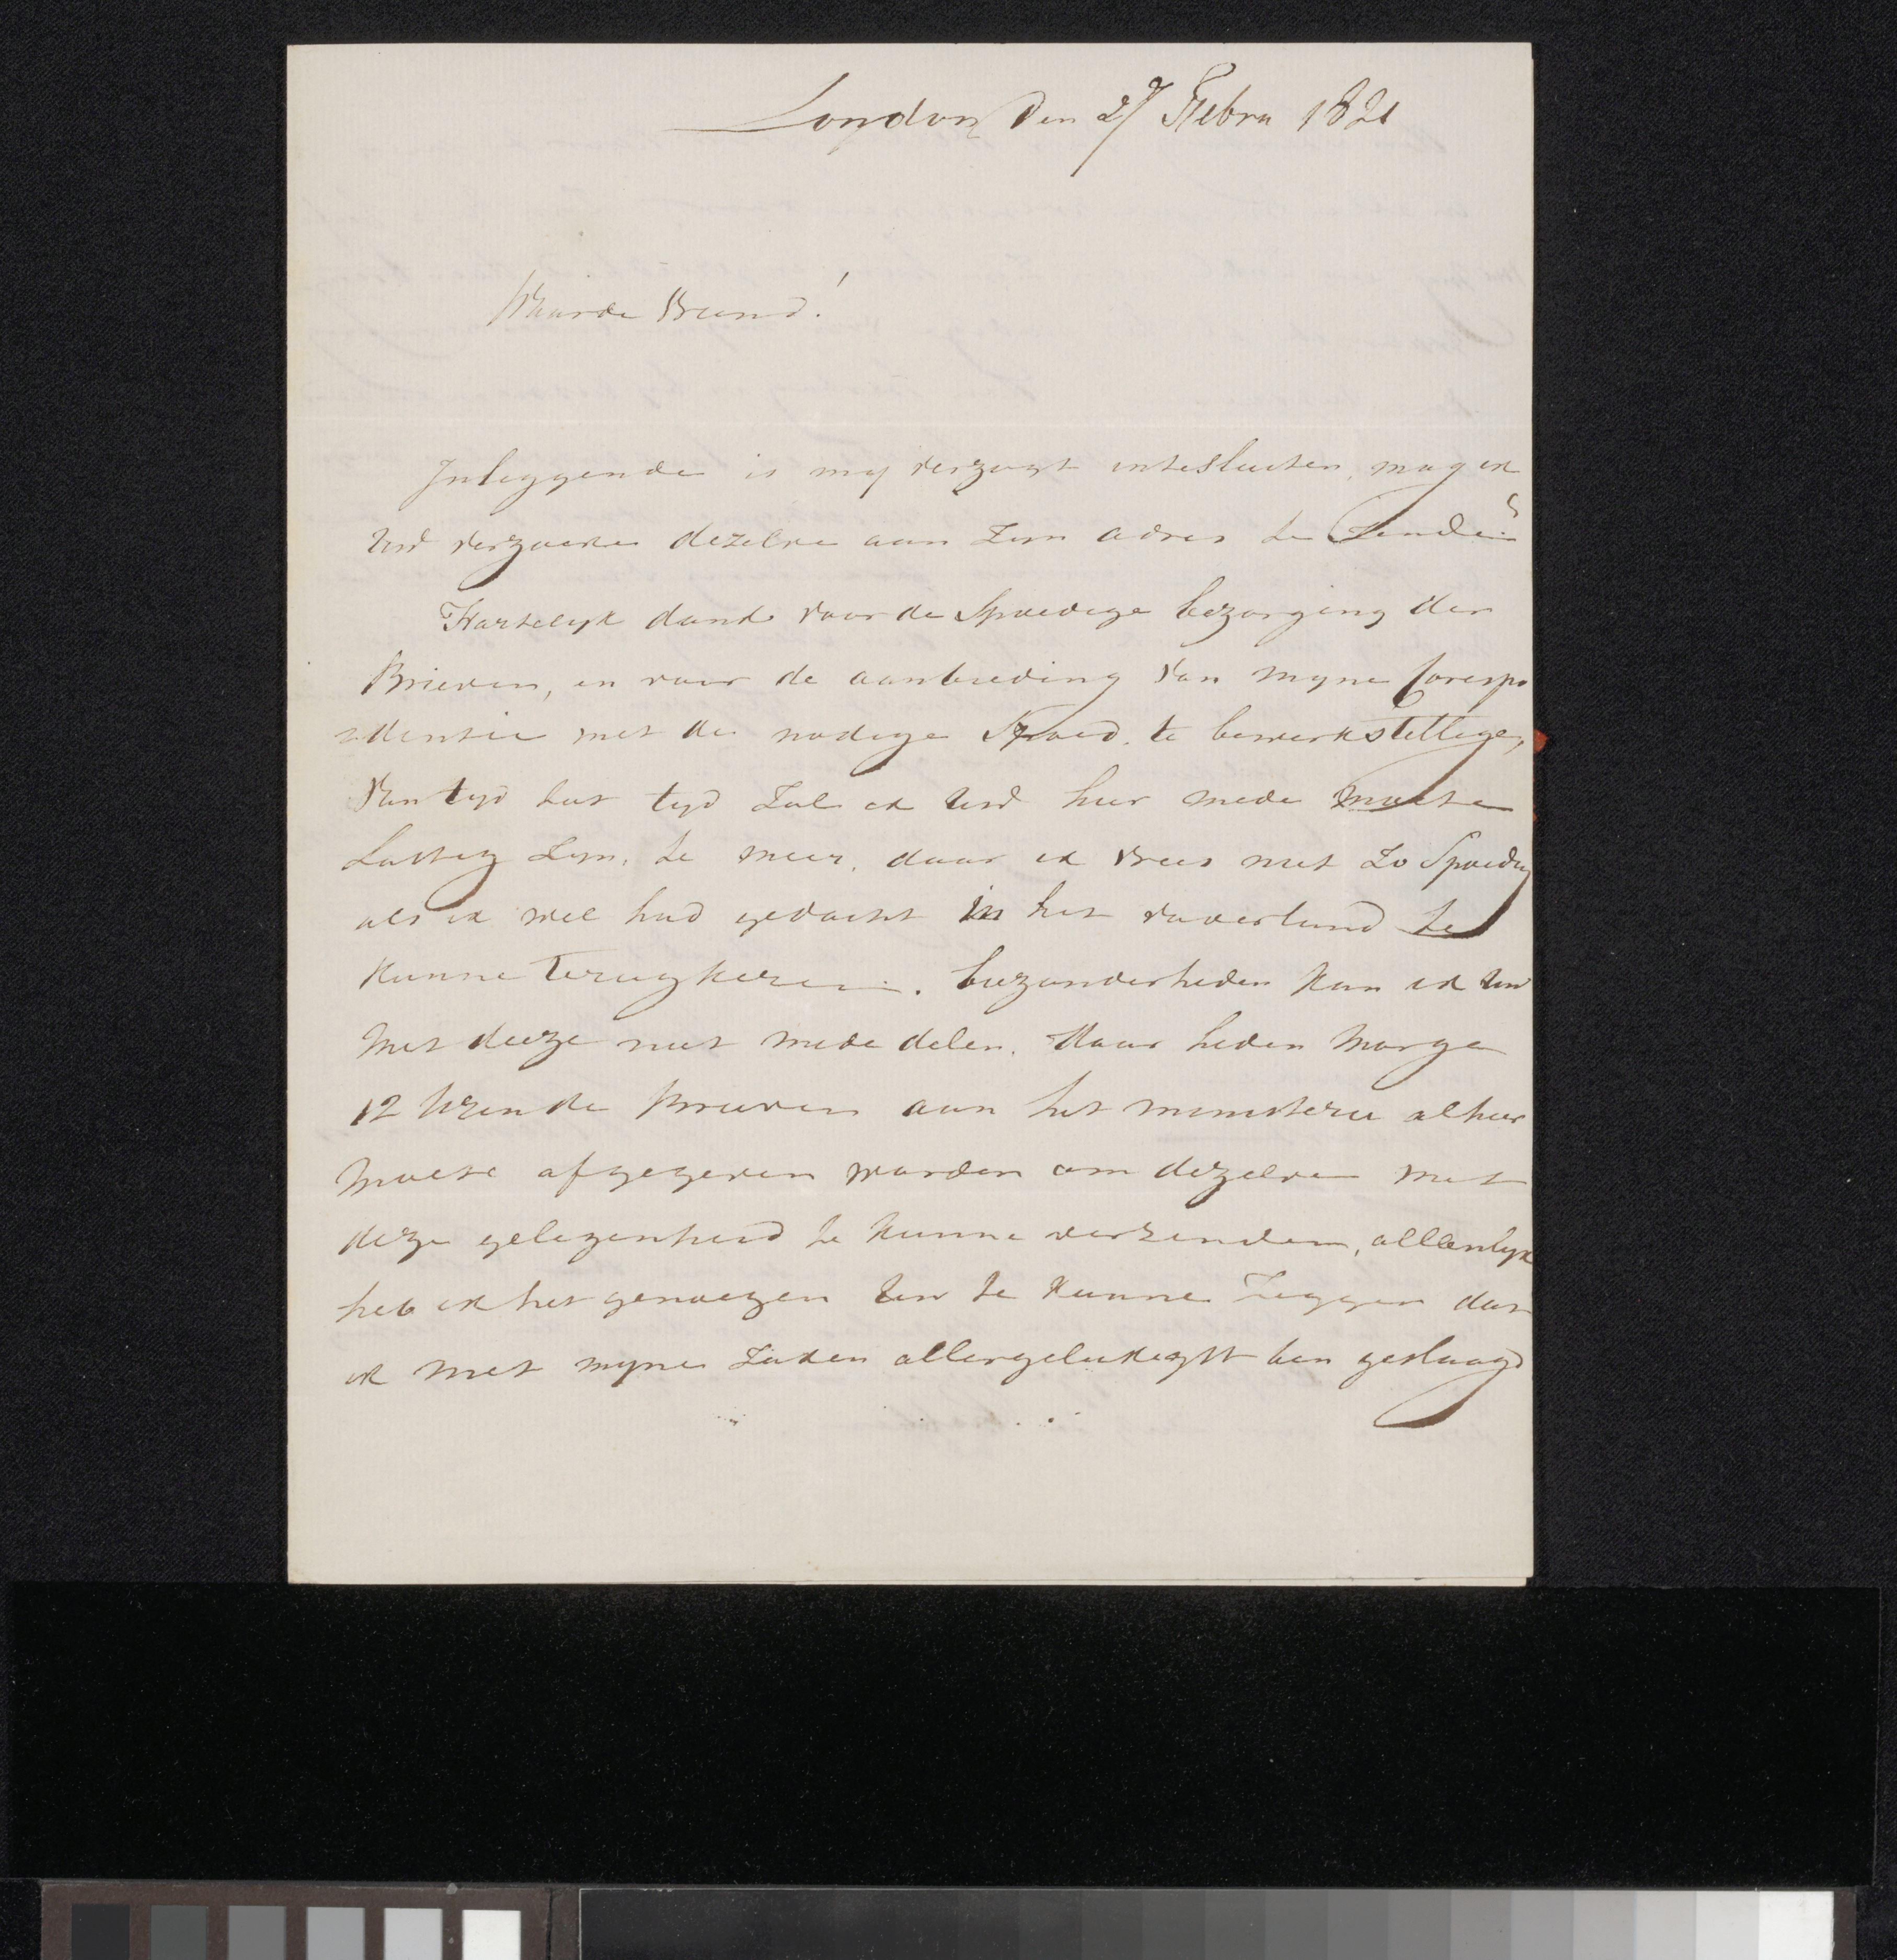 London den 27 Febru 1821
Waarde Vriend!
Inleggende is mij verzogt intesluiten, mag ik
Uw verzoeken dezelve aan Zyn adres te Zenden
Hartelyk dank voor de Spoedige bezorging der
Brieven, en voor de aanbieding van myne Corespo
ndensie met de nodige Spoed te bewerkstellige,
Van tyd tot tyd Zal ik Uw hier mede moeten
Lastig Zyn, te meer, daar ik vrees niet Zo Spoedig
als ik wel had gedacht in het vaderland te
Kunne Terugkeren. biezonderheden kan ik Uw
met deeze niet mede delen, daar heden morge
12 Uren de Brieven aan het ministerie alhier
moete afgegeven worden om dezelve met
deze gelegenheid te kunne verzenden, allenlyk
heb ik het genoegen Uw te kunne Zeggen dat
ik met myne Zaken allergelukkigst ben geslaagd